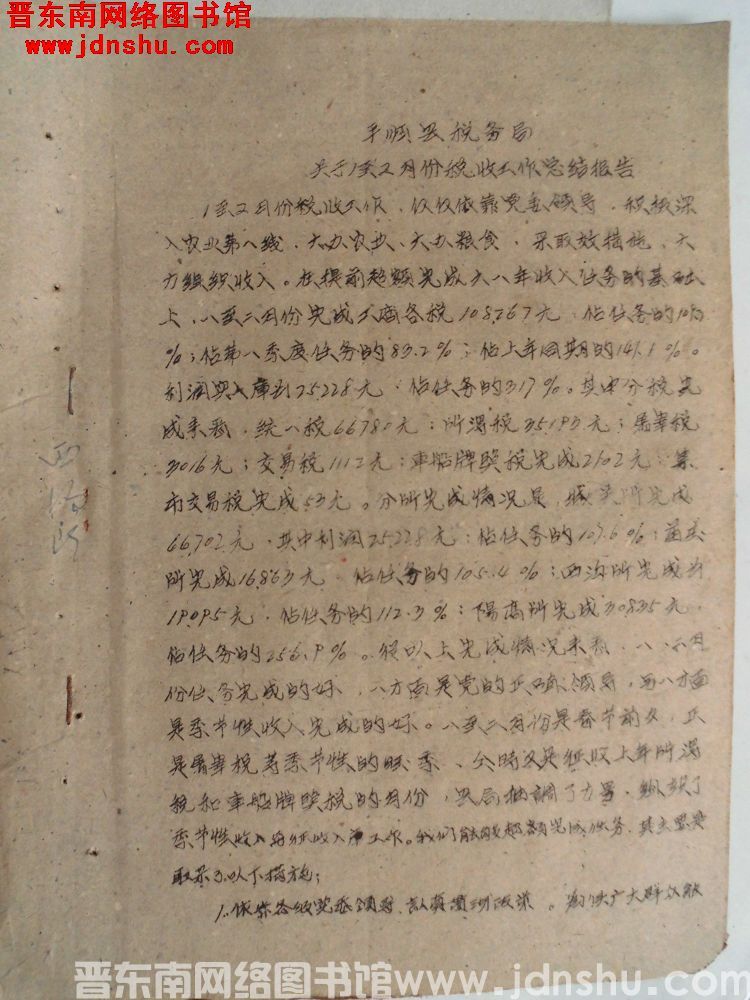 晋东南网络图书馆
www.jdnshu.com
平顺县税务局
关于1至2月份税收工作总结报告
1至2月份税收工作,仅仅依靠党委领导,积极深
入农业第一线,大办农业、大办粮食,采取效措施,大
力组织收入。在提前超额完成六〇年收入任务的基础
上,一至二月份完成工商各税108767元,佔任务的
%;佔第一季度任务的83.2%;佔上年同期的141.1%。
利润入库到25228元,佔任务的317%。其中分税完
成来看,统一税66780元;所得税35193元;屠宰税
3016元;交易税1112元;車船牌照税完成2102元;集
市交易税完成53元。分所完成情况是,城关所完成
66702元,其中利润25228元;佔任务的107.6%;苗庄
所完成16863元,佔任务的105.4%;西沟所完成
19095元,佔任务的112.3%;陽高所完成30835元,
佔任务的256.9%。从以上完成情况来看,一、二月
份任务完成的好,一方面是党的正确领导,另一方面
是季节性收入完成的好。一至二月份是春节前夕,正
是屠宰税等季节性的旺季,仝時又是征收上年所得
税和車船牌照税的月份,县局抽調了力量,組织了
季节性收入工作。我们能够超額完成任务,其主要是
取采了以下措施:
1.依靠各级党委领导,認真贯彻政策。為使广大群众
西沟所
晋东南网络图书馆www.jdnshu.com